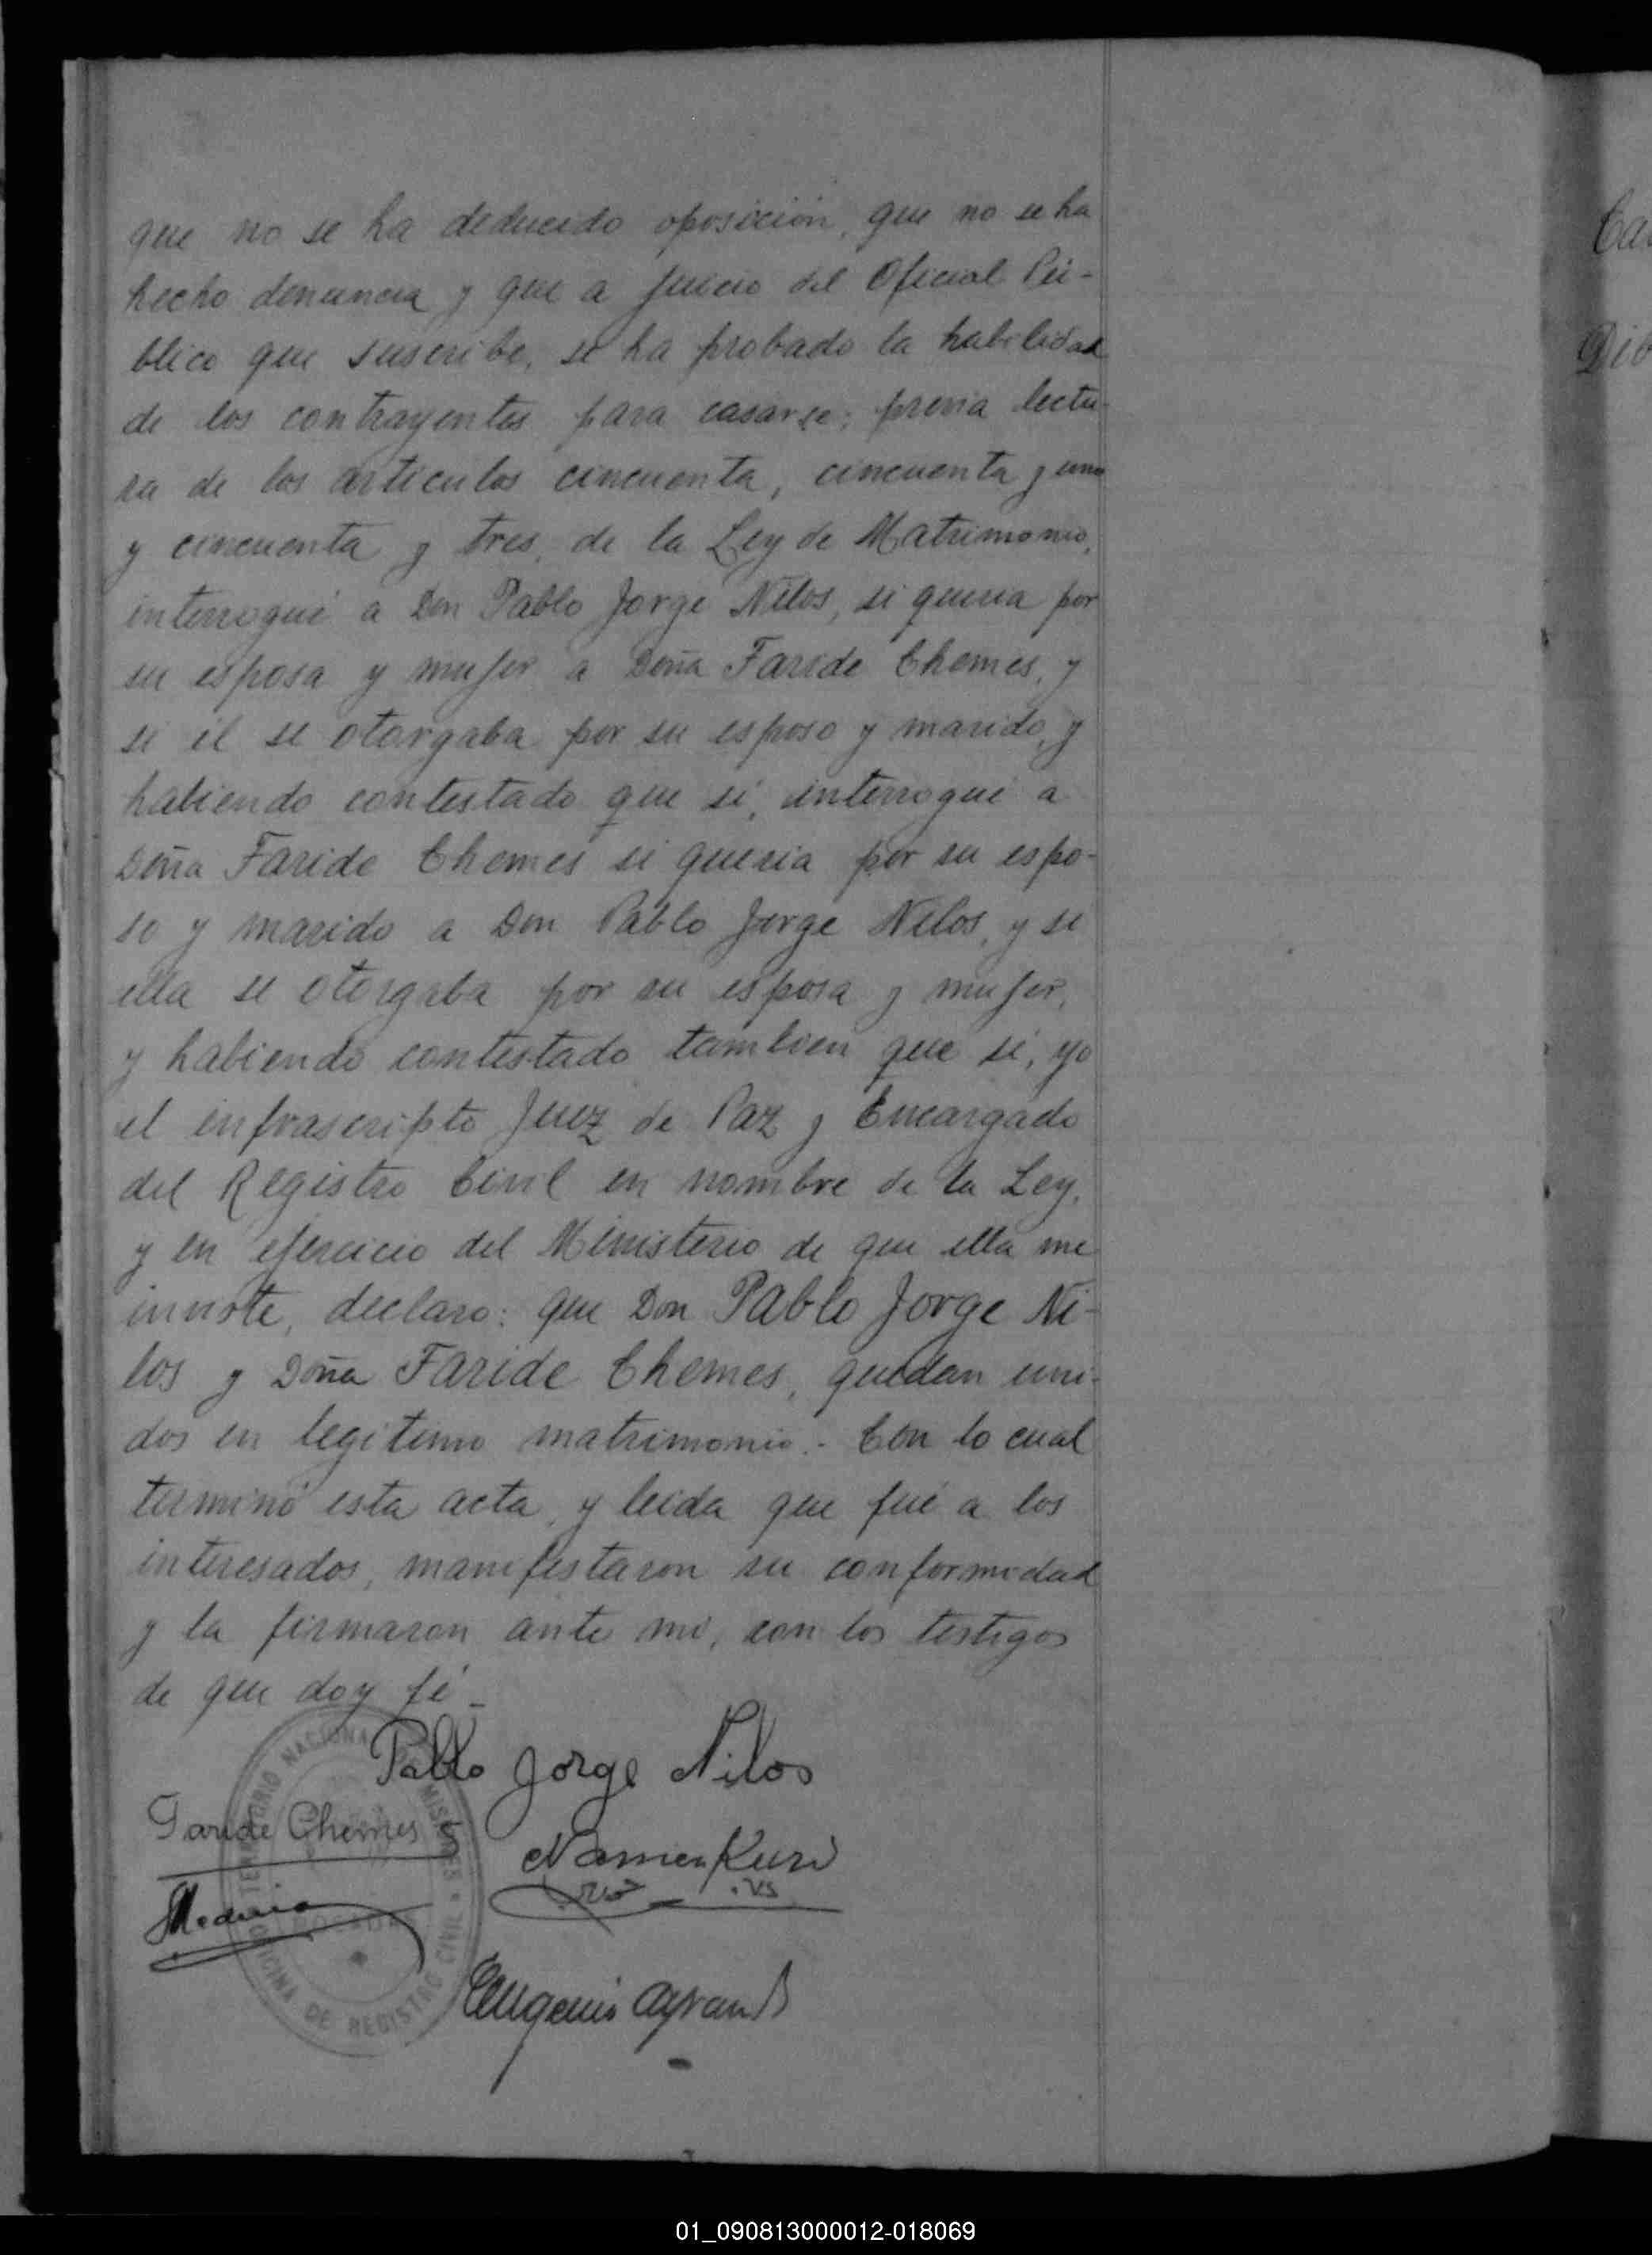 que no se ha deducido oposición, que no se ha
hecho denuncia y que a juicio del Oficial Pú-
blico que suscribe, se ha probado la habilidad
de los contrayentes para casarse; previa lectu-
ra de los artículos cincuenta, cincuenta y uno
y cincuenta y tres, de la Ley de Matrimonio,
interrogué a Don Pablo Jorge Nilos, si queria por
su esposa y mujer a Doña Faride Chemes, y
si él se otorgaba por su esposo y marido, y
habiendo contestado que si, interrogué a
Doña Faride Chemes si queria por su espo-
so y marido a Don Pablo Jorge Nilos, y si
ella se otorgaba por su esposa y mujer,
y habiendo contestado tambien que si, yo
el infrascripto Juez de Paz y Encargado
del Registro Civil en nombre de la Ley,
y en ejercicio del Ministerio de que ella me
inviste, declaro: que Don Pablo Jorge Ni-
los y Doña Faride Chemes, quedan uni-
dos en legitimo matrimonio.- Con lo cual
terminó esta acta, y leida que fué a los
interesados, manifestaron su conformidad
y la firmaron ante mi, con los testigos
de que doy fé -
Pablo Jorge Nilos
Faride Chemes
Namen Kuri
Medina
Eugenio
TERRITORIO NACIONAL DE MISIONES
OFICINA DE REGISTRO CIVIL
01_090813000012-018069